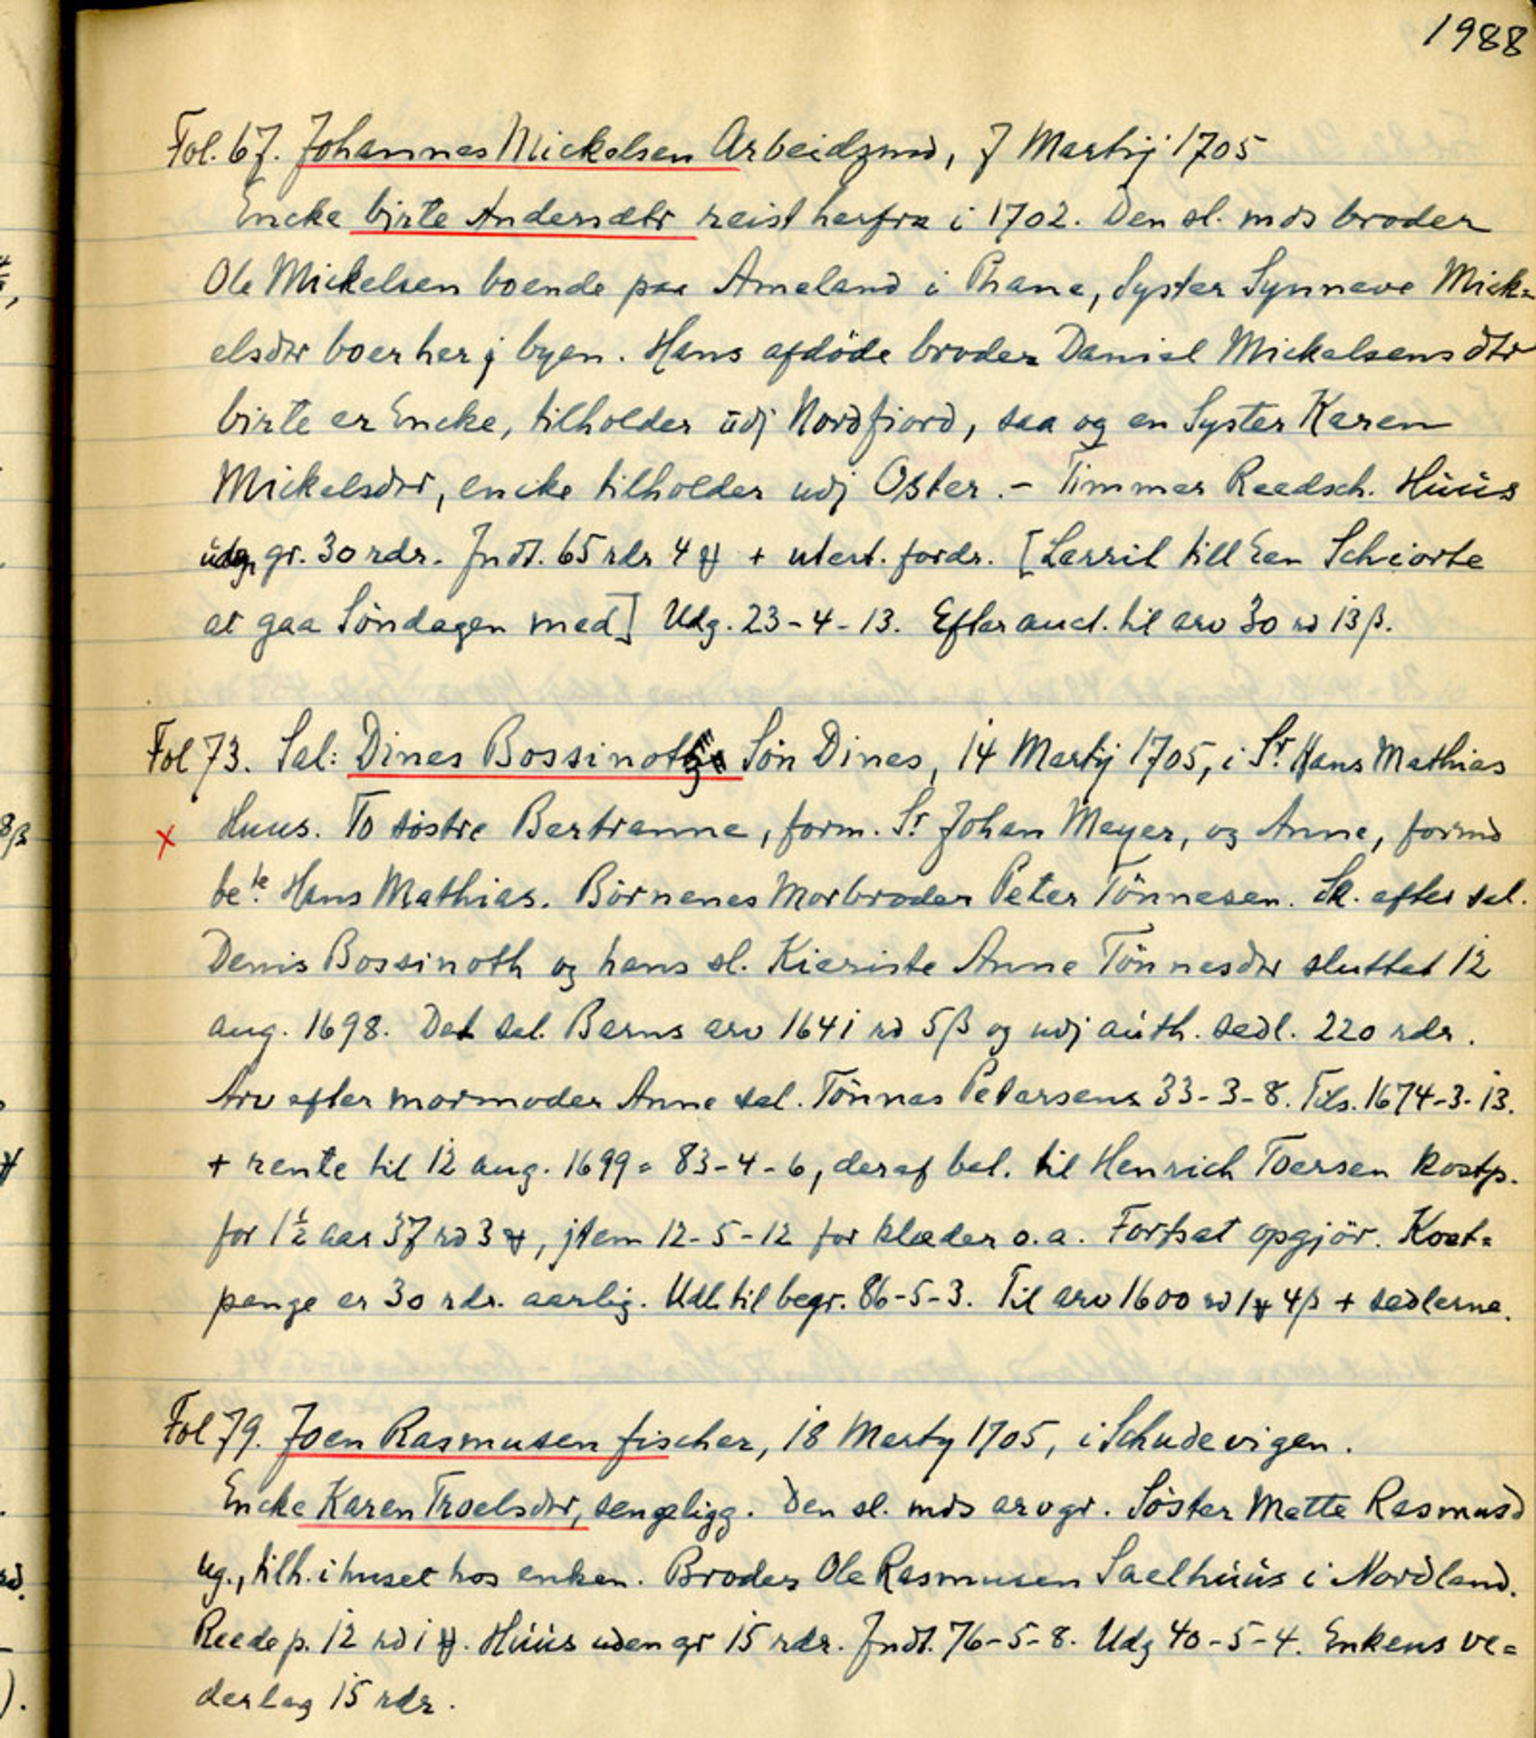 1988
Fol. 67. Johannes Mickelsen Arbeidzmd, 7 Martij 1705
Encke birte Andersdtr reist herfra i 1702. Den sl. mds broder
Ole Mickelsen boende paa Ameland i Phane, Syster Synneve Mick=
elsdtr boer her j byen. Hans afdöde broder Daniel Mickelsens dtr
birte er Encke, tilholder udj Nordfiord, saa og en Syster Karen
Mickelsdtr, encke tilholder udj Oster. - Timmer Reedsch. Húús
gr. 30 rdr. Jndt. 65 rdr 4 ꟻ + utest. fordr. [Lerril till Een Schiorte
at gaa Söndagen med] Udg. 23-4-13. Efter auct. til arv 30 rd 13 β.
Fol 73. Sal: Dines Bossinoths Sön Dines, 14 Martij 1705, i Sr Hans Mathias
x Huus. To söstre Bertranne, form. Sr Johan Meyer, og Anne, formd
bete Hans Mathias. Börnenes Morbroder Peter Tönnesen. Sk. efter sal.
Denis Bossinoth og hans sl. Kieriste Anne Tönnesdtr sluttet 12
aug. 1698. Det sal. Barns arv 1641 rd 5 β og udj aúth. sedl. 220 rdr.
Arv efter mormoder Anne sal. Tönnes Petersens 33-3-8. Tils. 1674-3-13.
+ rente til 12 aug. 1699 = 83-4-6, deraf bet. til Henrich Toersen kostp.
for 1½ aar 37 rd 3 ꟻ, jtem 12-5-12 for klæder o.a. Fortsat opgjör. Kost=
penge er 30 rdr. aarlig. Udl. til begr. 86-5-3. Til arv 1600 rd 1 ꟻ 4 β + sedlerne.
Fol 79. Joen Rasmusen fischer, 18 Marty 1705, i Schudevigen.
Encke Karen Troelsdtr, sengeligg. Den sl. mds arvgr. Söster Mette Rasmusd
ug., tilh. i huset hos enken. Broder Ole Rasmusen Saelhúús i Nordland.
Reede p. 12 rd 1 ꟻ. Húús uden gr 15 rdr. Jndt. 76-5-8. Udg 40-5-4. Enkens ve=
derlag 15 rdr.